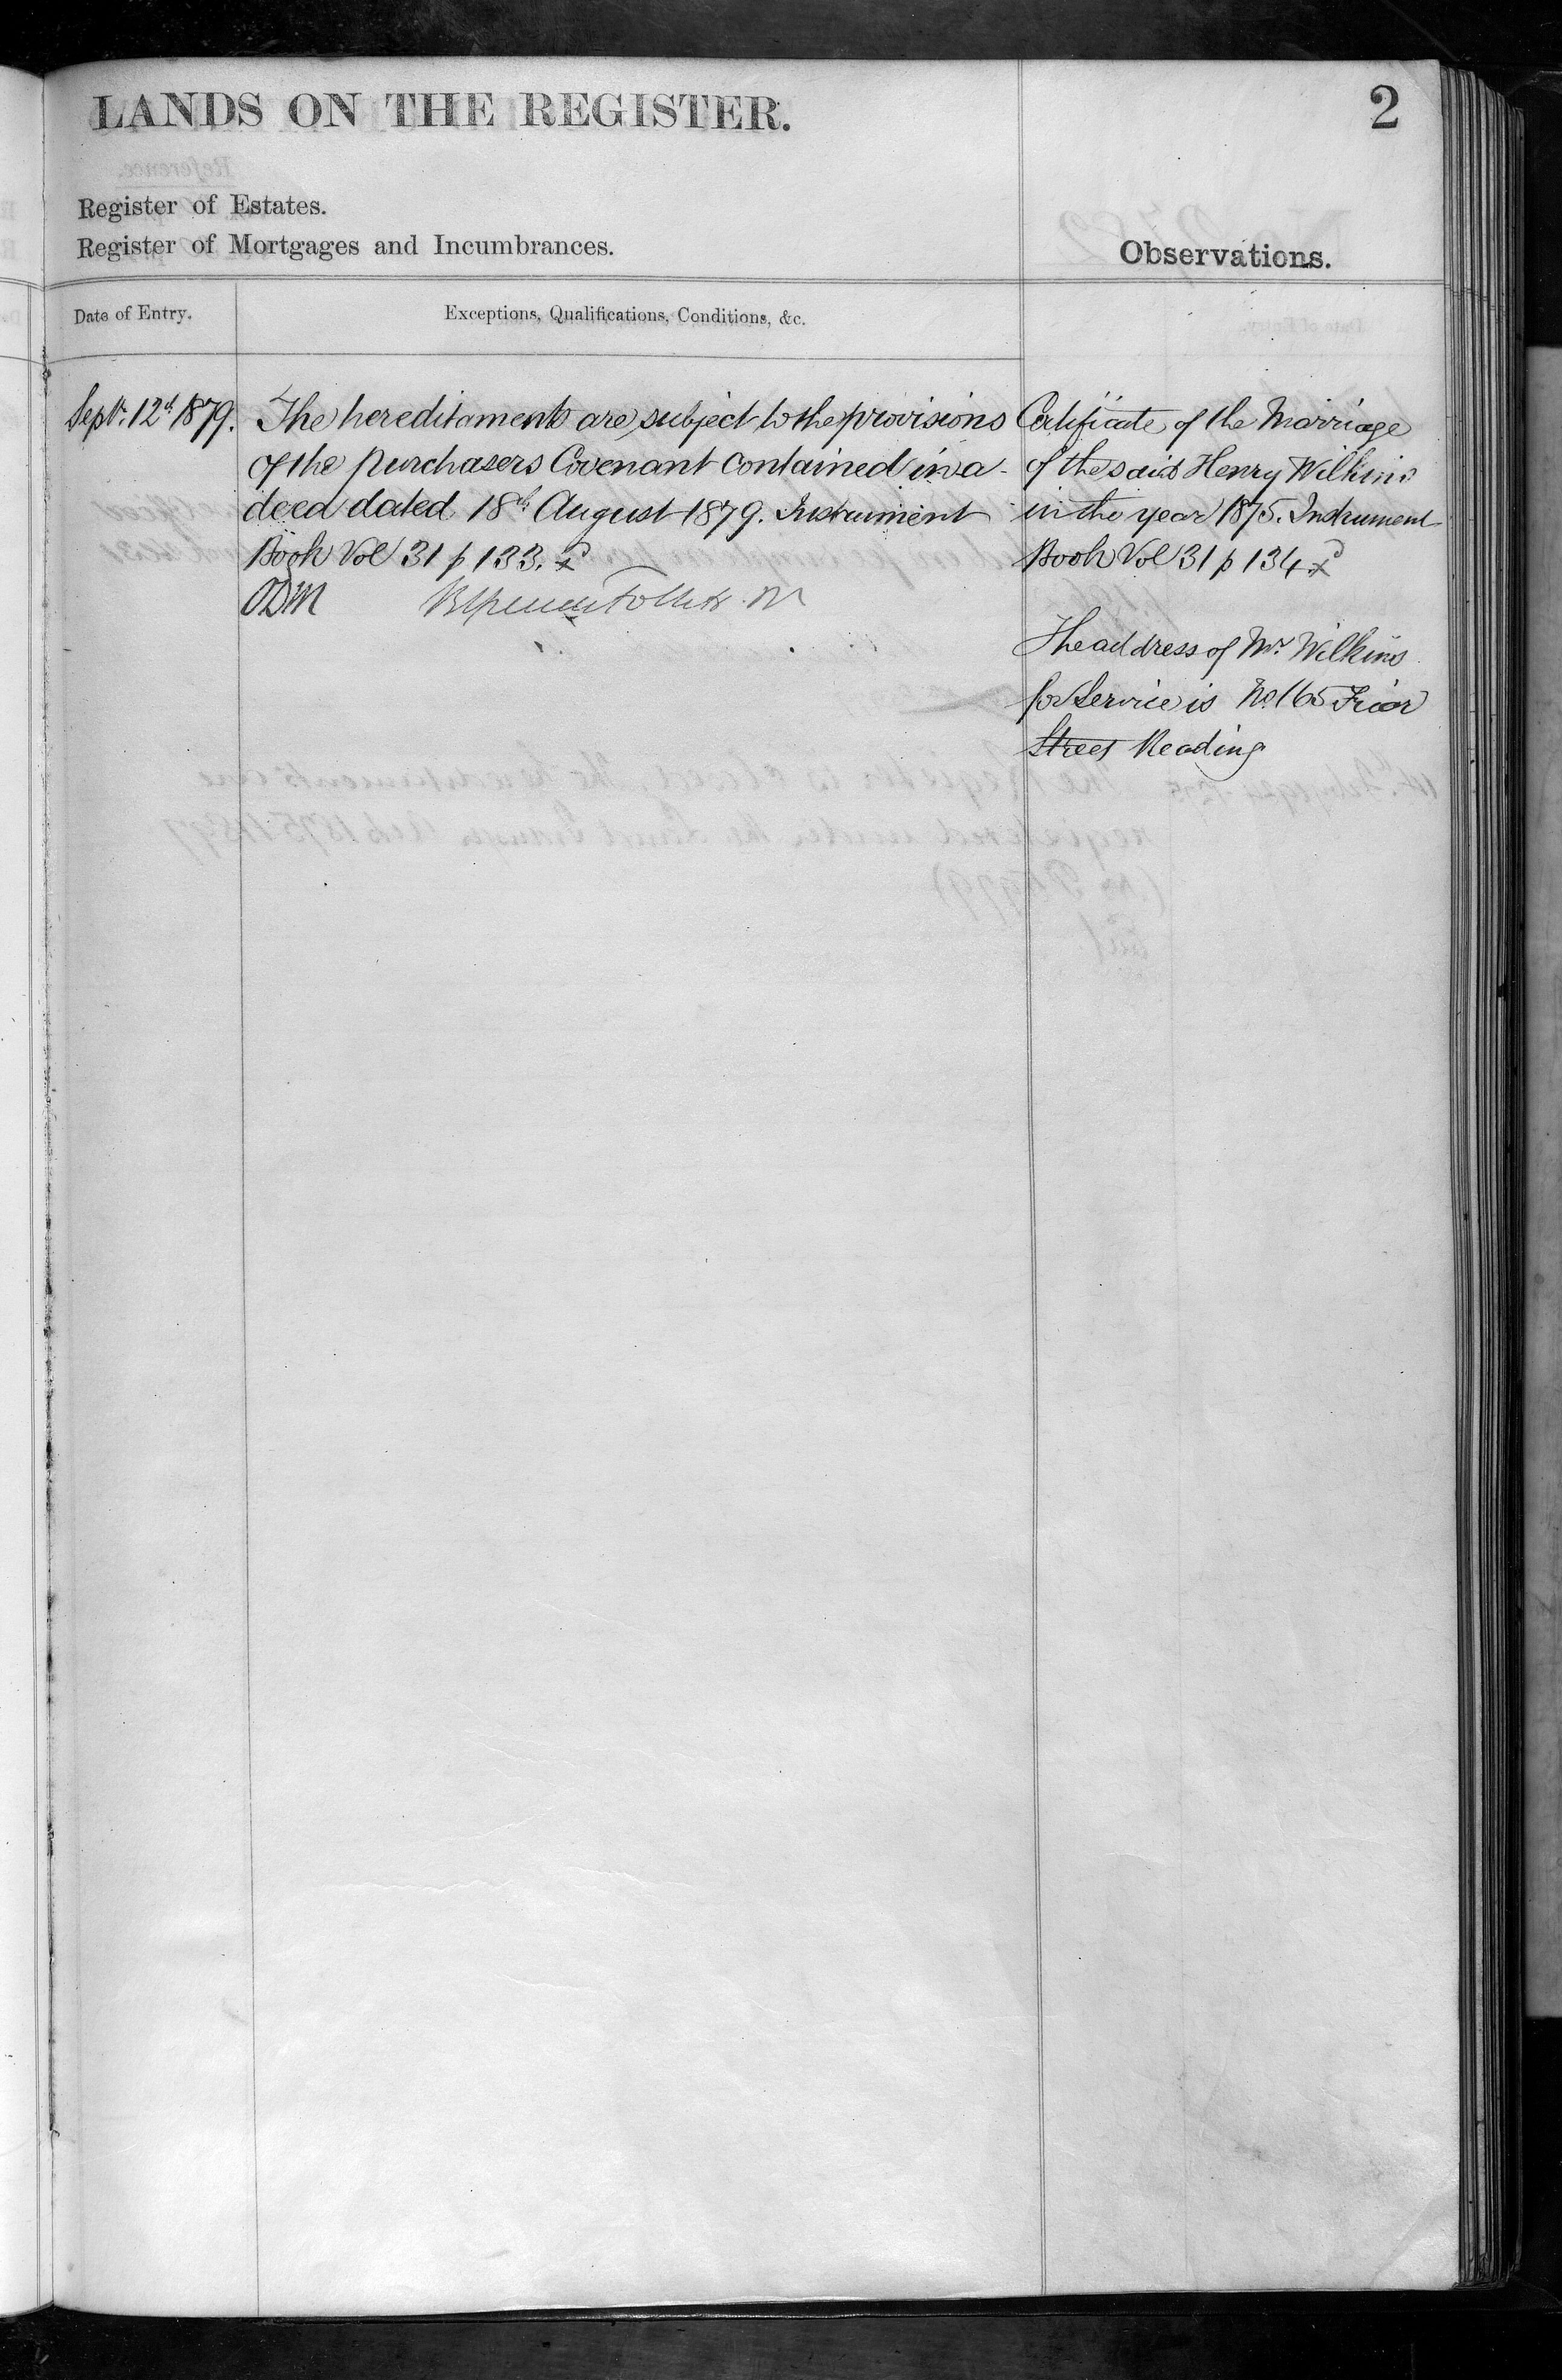 LANDS ON THE REGISTER.
2
Register of Estates.
Register of Mortgages and Incumbrances.
Observations.
Date of Entry.
Exceptions, Qualifications, Conditions, &c.
Sept. 12th 1879.
The hereditaments are subject to the provisions
of the purchasers Covenant contained in a
deed dated 18th August 1879. Instrument
Book Vol 31 p 133.
ODM
Certificate of the Marriage
of the said Henry Wilkins
in the year 1875. Instrument
Book Vol 31 p 134
The address of Mr. Wilkins
for Service is No. 165 Friar
Street Reading